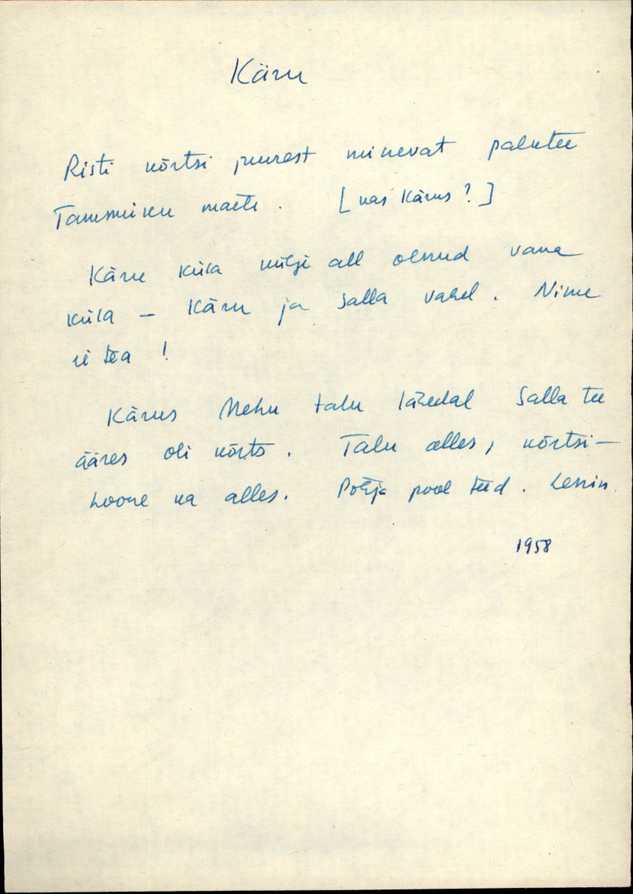 Käru
Risti kõrtsi juurest minevat palktee
Tammiku maete. [kas Kärus?]
Käru küla külje all olnud vana
küla – Käru ja Salla vahel. Nime
ei tea!
Kärus Mehu talu lähedal Salla tee
ääres oli kõrts. Talu alles, kõrtsi-
hoone ka alles. Põhja pool teed.
1958